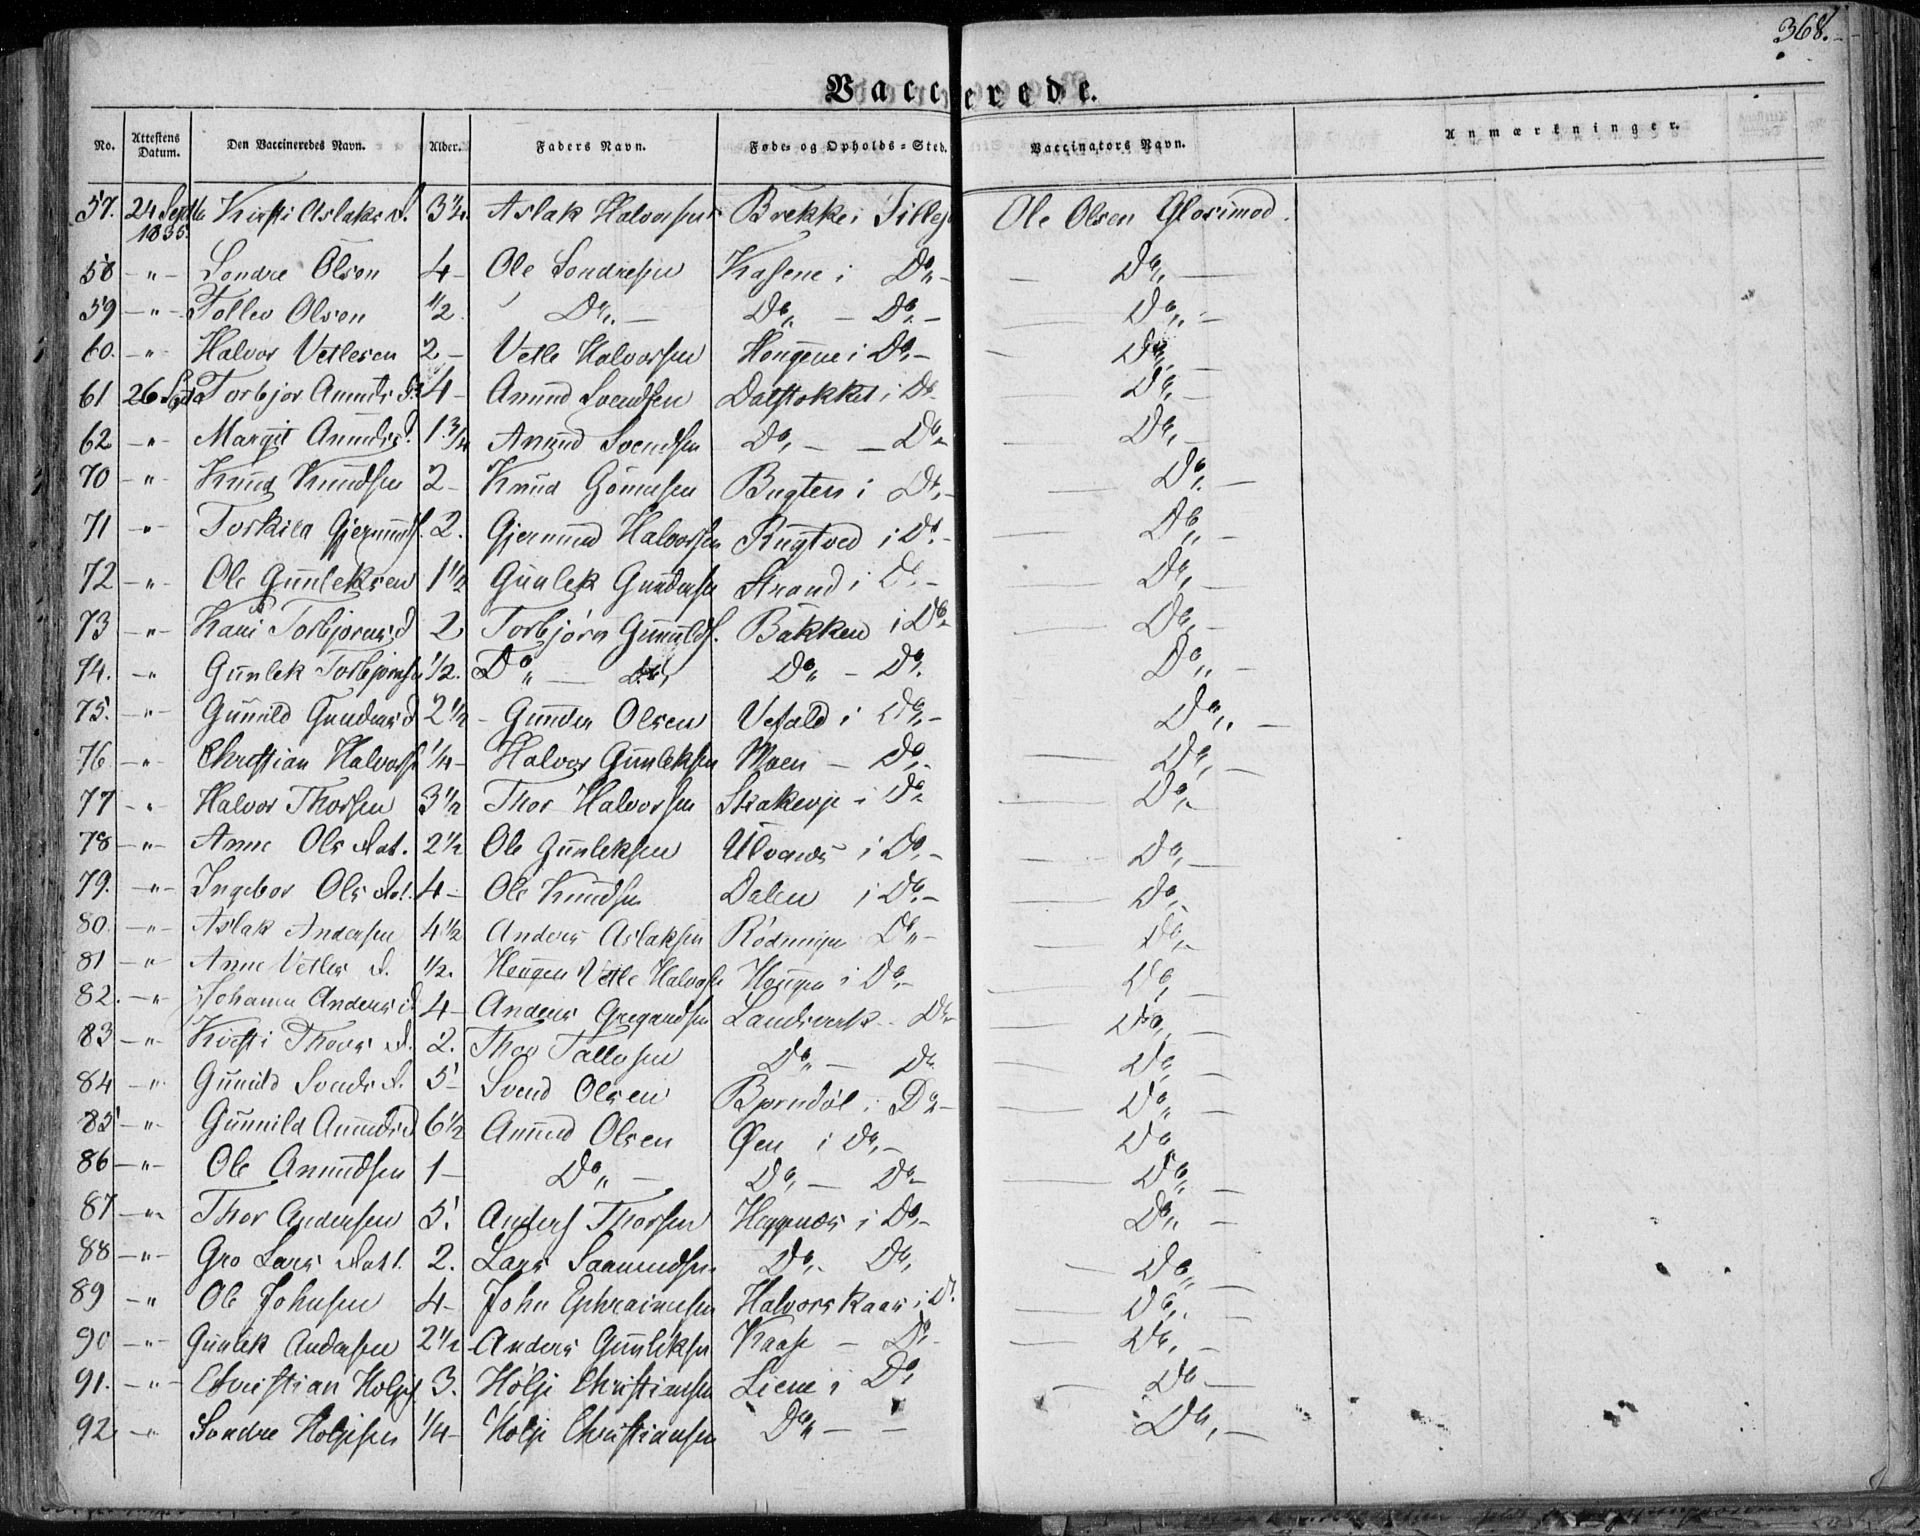 368.
Vaccinerede.
No. Attestens Datum. Den Vaccineredes Navn. Alder. Faders Navn. Føde- og Opholds-Sted. Vaccinators Navn. Anmærkninger.
57. 24 Septb 1855. Kirsti Aslaks d. 3½. Aslak Halvorsen Brekke i Ole Olsen Glosimod.
58 -"- Sondre Olsen 4- Ole Sondresen Kasene i Do" - Do"
59 -"- Tollev Olsen ½ Do" - Do" - Do" - Do"
60. -"- Halvor Vetlesen 2- Vetle Halvorsen Hougene i Do - Do
61 26 Sept Torbjør Anunds D. 4- Anund Svendsen Dalstokket i Do Do
62 -"- Margit Anundsd. 1¾ Anund Svendsen Do - - Do Do
70 -"- Knud Knudsen 2- Knud Bugten i Do Do
71 " Gjermunds. 2. Gjermund Halvorsen Rugtved i Do Do
72 -"- Ole Gunleksen 1½ Gunlek Gundersen Strand i Do Do
73 -"- Kari Torbjørnsd 2 Torbjørn Gunulds. Bakken i Do Do
74. -"- Gunlek Torbjørnsen ½. Do" - Do" - Do. Do"
75. -"- Gunild Gundersd 2½ - Gunder Olsen Vefald i Do - Do"
76 -"- Christian Halvors ¼- Halvor Gunleksen Moen - Do Do
77 -"- Halvor Thorsen 3½ Thor Halvorsen i Do Do
78 -"- Anne Ols Dat. 2½ Ole Gunleksen Ulvenes i Do - Do
79. -"- Ingebor Ols Dat. 4- Ole Knudsen Dalen i Do - Do
80. -"- Aslak Andersen 4½ Anders Aslaksen Do" - Do
81 -"- Anne Vetles d. ½. Hougen Vetle Halvors Hougen i Do - Do
82. -"- Johanne Anders d 4- Anders Landsverk - Do Do
83 -"- Kirsti Thors d. 2. Thor Tallefsen Do - Do Do
84 -"- Gunild Svends d. 5- Svend Olsen Bjørndøl i Do - Do
85 -"- Gunnild Anundsd 6½ Anund Olsen Øen i Do - Do
86 -"- Ole Anundsen 1- Do" - Do, - Do Do
87 -"- Thor Andersen 5. Anders Thorsen Heggenes i Do - Do
88 -"- Gro Lars Datt. 2. Lars Saamundsen Do, Do, Do
89 -"- Ole Johnsen 4- John Ephraimsen Halvorskaas i Do Do
90 -"- Gunlek Andersen 2½ Anders Gunleksen Kaase - Do Do
91. -"- Christian Holjes 3. Holje Christiansen Liene i Do Do
92 -"- Sondre Holjesen ¼- Holje Christiansen Do - - Do